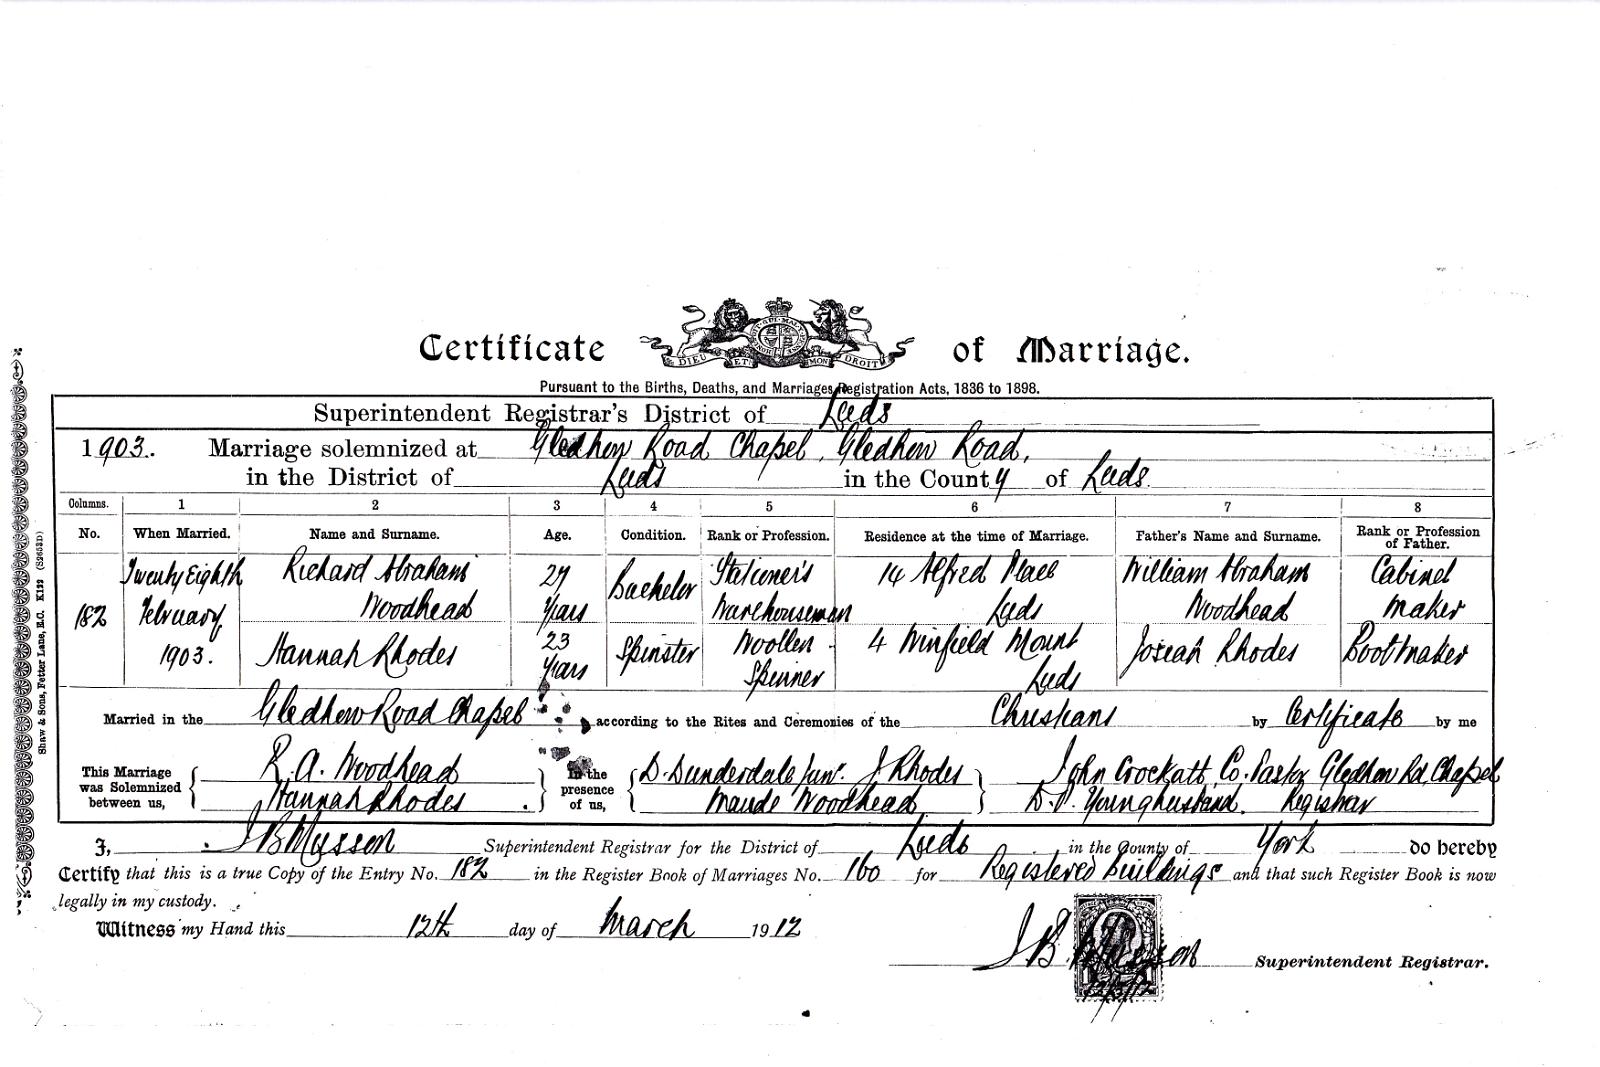 Certificate of Marriage.
DIEU ET MON DROIT
Pursuant to the Births, Deaths, and Marriages Registration Acts, 1836 to 1898.
Superintendent Registrar's District of Leeds
1903. Marriage solemnized at Gledhow Road Chapel, Gledhow Road,
in the District of Leeds in the County of Leeds
Columns. 1 2 3 4 5 6 7 8
No. When Married. Name and Surname. Age. Condition. Rank or Profession. Residence at the time of Marriage. Father's Name and Surname. Rank or Profession of Father.
182 Twenty Eighth February 1903. Richard Abraham Woodhead 27 Years Bachelor Stationer's Warehouseman 14 Alfred Place Leeds William Abraham Woodhead Cabinet Maker
Hannah Rhodes 23 Years Spinster Woollen Spinner 4 Winfield Mount Leeds Josiah Rhodes Bootmaker
Married in the Gledhow Road Chapel according to the Rites and Ceremonies of the Christians by Certificate by me
This Marriage was Solemnized between us, R. A. Woodhead Hannah Rhodes In the presence of us, D. Dunderdale Junr. J. Rhodes Maude Woodhead John Crockatt Co. Pastor Gledhow Rd, Chapel D. P. Younghusband. Registrar
I, J B Musson Superintendent Registrar for the District of Leeds in the County of York do hereby
Certify that this is a true Copy of the Entry No. 182 in the Register Book of Marriages No. 160 for Registered Buildings and that such Register Book is now
legally in my custody.
Witness my Hand this 12th day of March 1912
J B Musson Superintendent Registrar.
12/3/12
Shaw & Sons, Fetter Lane, E.C. K122 (S2653D)